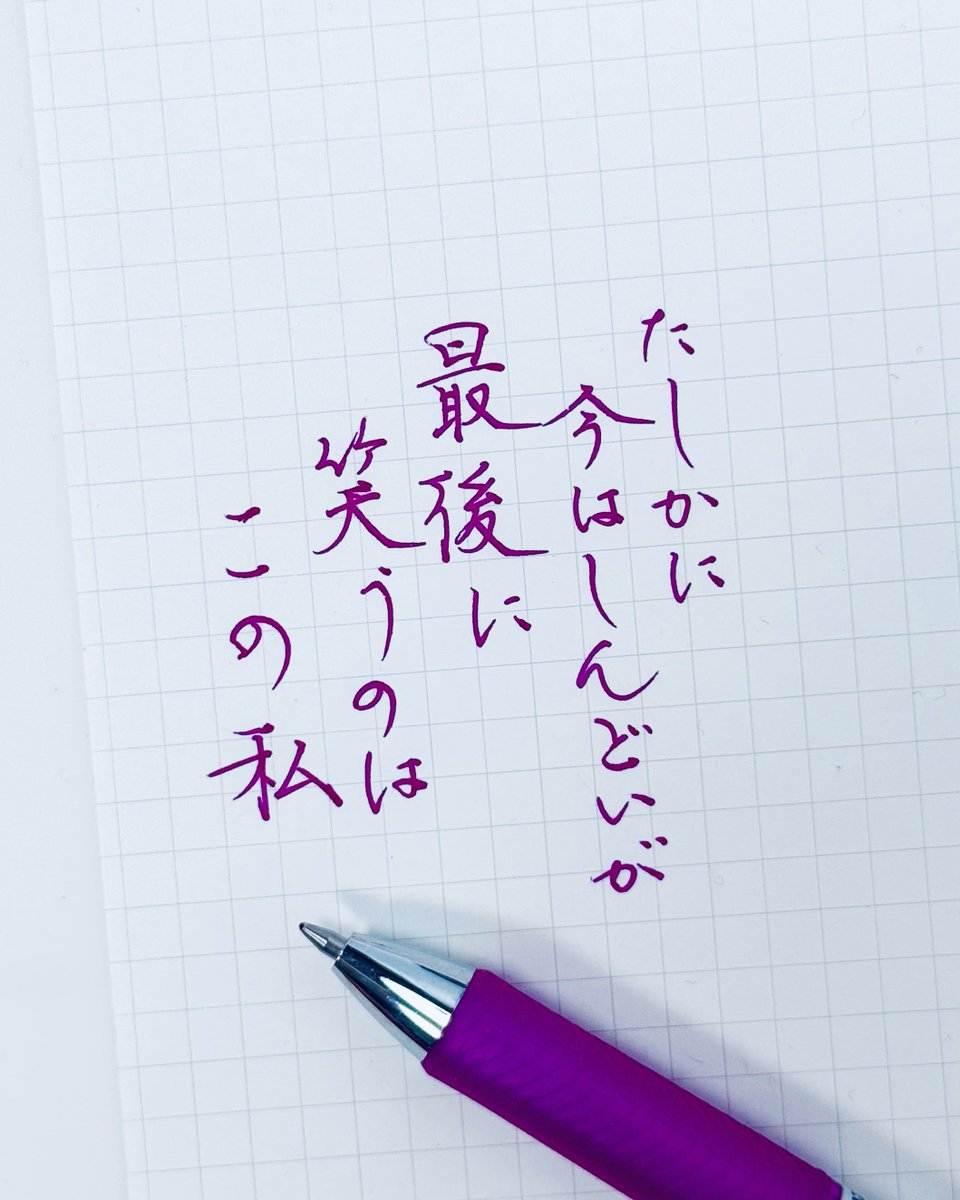 たしかに
今はしんどいが
最後に
笑うのは
この私